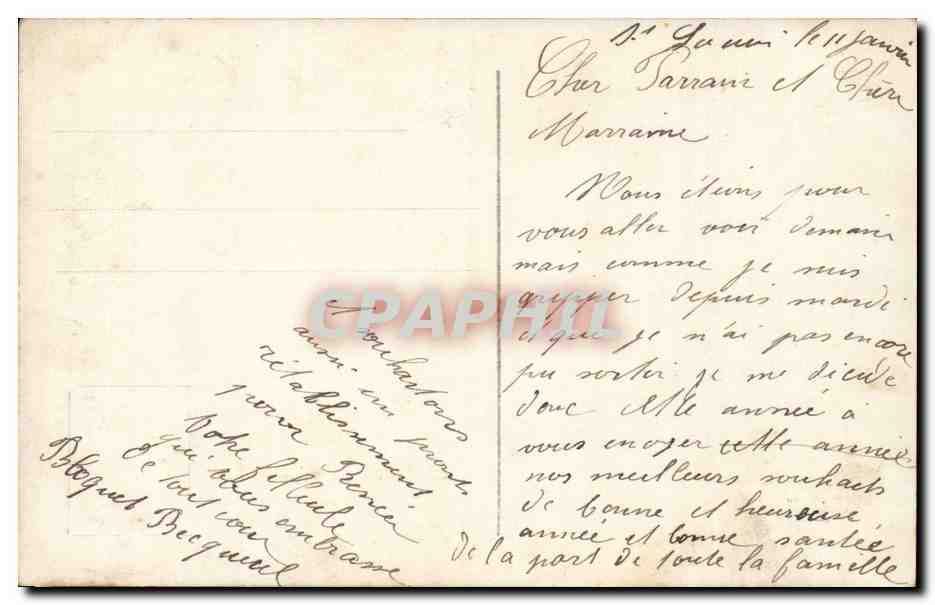 le 11 Janvier
Cher Parrain et Chère
Marraine
Nous étions pour
vous aller voir demain
mais comme je suis
gripper depuis mardi
et que je n'ai pas encore
pu sortir je me décide
donc cette année à
vous envoyer cette année
nos meilleurs souhaits
de bonne et heureuse
année et bonne santée
de la part de toute la famille
souhaitons
aussi un prompt
rétablissement
pour
Votre filleule
Qui vous embrasse
de tout cœur
Bloquet Becquerel
CPAPHIL